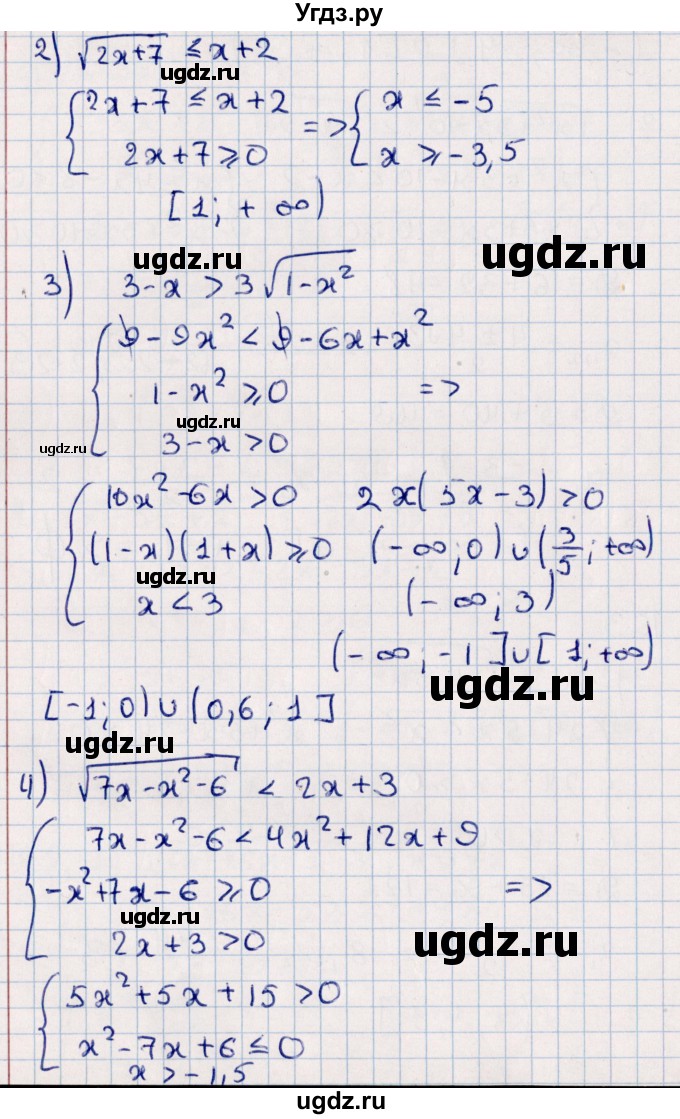 Угдз.ру
2) √(2x+7) ≤ x+2
ugdz.ru
{ 2x+7 ≤ x+2 => { x ≤ -5
2x+7 ⩾ 0 x ⩾ -3,5
ugdz.ru
[1; + ∞)
ugdz.ru
ugdz.ru
3) 3-x > 3√(1-x²)
{ 9 - 9x² < 9 - 6x + x²
1-x² ⩾ 0 =>
ugdz.ru
ugdz.ru
3-x > 0
{ 10x² - 6x > 0 2x(5x-3) > 0
(1-x)(1+x) ⩾ 0 (-∞; 0) ∪ (3/5; +∞)
ugdz.ru
x < 3 (-∞; 3)
(-∞; -1] ∪ [1; +∞)
ugdz.ru
[-1; 0) ∪ (0,6; 1]
ugdz.ru
4) √(7x-x²-6) < 2x+3
{ 7x-x²-6 < 4x²+12x+9
-x²+7x-6 ⩾ 0 =>
ugdz.ru
2x+3 > 0
ugdz.ru
{ 5x²+5x+15 > 0
x²-7x+6 ≤ 0
x > -1,5
ugdz.ru